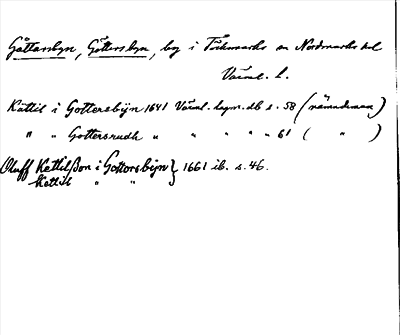 Gåttarsbyn, Göttersbyn, by i Töcksmarks sn Nordmarks hd
Värml. l.
Kättil i Gottersbÿn 1641 Värml. lagm. db s. 58 (nämndeman)
" " Gottersrudh " " " " " 61 ( " )
Oluff Kettilßon i Gottorsbÿn } 1661 ib. s. 46.
Kettil " "